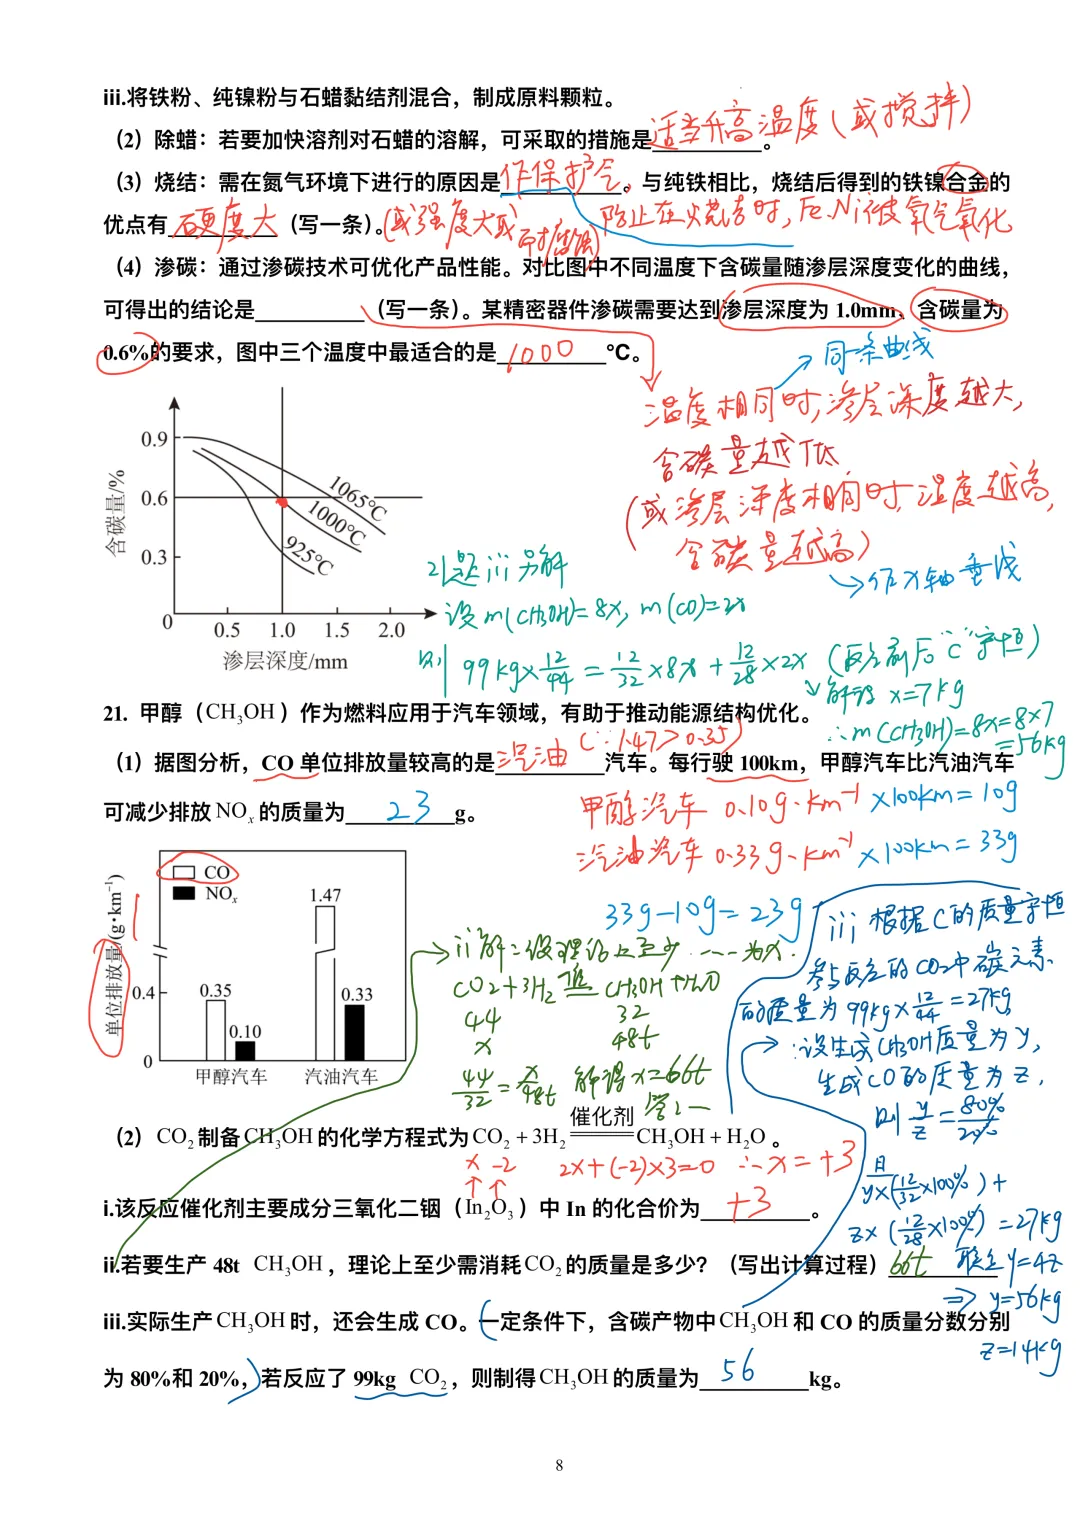 iii.将铁粉、纯镍粉与石蜡黏结剂混合，制成原料颗粒。
（2）除蜡：若要加快溶剂对石蜡的溶解，可采取的措施是适当升高温度（或搅拌）。
（3）烧结：需在氮气环境下进行的原因是作保护气，。与纯铁相比，烧结后得到的铁镍合金的
防止在烧结时，Fe、Ni被氧气氧化
优点有硬度大（写一条）。（或强度大或耐腐蚀）
（4）渗碳：通过渗碳技术可优化产品性能。对比图中不同温度下含碳量随渗层深度变化的曲线，
可得出的结论是__________（写一条）。某精密器件渗碳需要达到渗层深度为 1.0mm、含碳量为
0.6%的要求，图中三个温度中最适合的是1000℃。
同一条曲线
温度相同时，渗层深度越大，
含碳量越低
（或渗层深度相同时，温度越高，
含碳量越高）
作x轴垂线
含碳量/%
0.9
0.6
0.3
0
0.5 1.0 1.5 2.0
渗层深度/mm
1065℃
1000℃
925℃
21题iii另解
设m(CH3OH)=8x, m(CO)=2x
则 99kg×12/44 = 12/32×8x + 12/28×2x （反应前后"C"守恒）
解得 x=7kg
∴m(CH3OH)=8x=8×7
=56kg
21. 甲醇（CH₃OH）作为燃料应用于汽车领域，有助于推动能源结构优化。
（∵1.47>0.35）
（1）据图分析，CO 单位排放量较高的是汽油汽车。每行驶 100km，甲醇汽车比汽油汽车
可减少排放 NOₓ 的质量为23g。
甲醇汽车 0.10g·km⁻¹×100km=10g
汽油汽车 0.33g·km⁻¹×100km=33g
33g-10g=23g
单位排放量/(g•km⁻¹)
CO
NOₓ
0.4
0
0.35
0.10
1.47
0.33
甲醇汽车 汽油汽车
ii解：设理论上至少……为x.
CO2+3H2 催 CH3OH+H2O
44 32
x 48t
44/32=x/48t 解得x=66t
答：一
iii 根据C的质量守恒
参与反应的CO2中碳元素
的质量为99kg×12/44=27kg
设生成CH3OH质量为y，
生成CO的质量为z，
则 y/z=80%/20%
且 y×(12/32×100%)+
z×(12/28×100%)=27kg
联立y=4z
⇒y=56kg
z=14kg
（2）CO₂制备CH₃OH的化学方程式为CO₂+3H₂ 催化剂 CH₃OH+H₂O。
x -2 2x+(-2)×3=0 ∴x=+3
i.该反应催化剂主要成分三氧化二铟（In₂O₃）中 In 的化合价为+3。
ii.若要生产 48t CH₃OH，理论上至少需消耗CO₂的质量是多少？（写出计算过程）66t
iii.实际生产CH₃OH时，还会生成 CO。一定条件下，含碳产物中CH₃OH和 CO 的质量分数分别
为 80%和 20%，若反应了 99kg CO₂，则制得CH₃OH的质量为56kg。
8